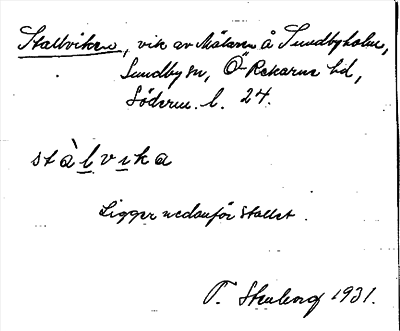 Stallviken, vik av Mälaren å Sundbyholm,
Sundby sn, Ö-Rekarne hd,
Söderm. l. 24.
stàlvika
Ligger nedanför stallet.
T. 1931.